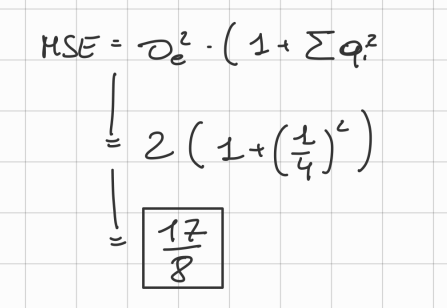 MSE = σₑ² · ( 1 + Σ qᵢ²
= 2 ( 1 + (1/4)² )
= 17/8